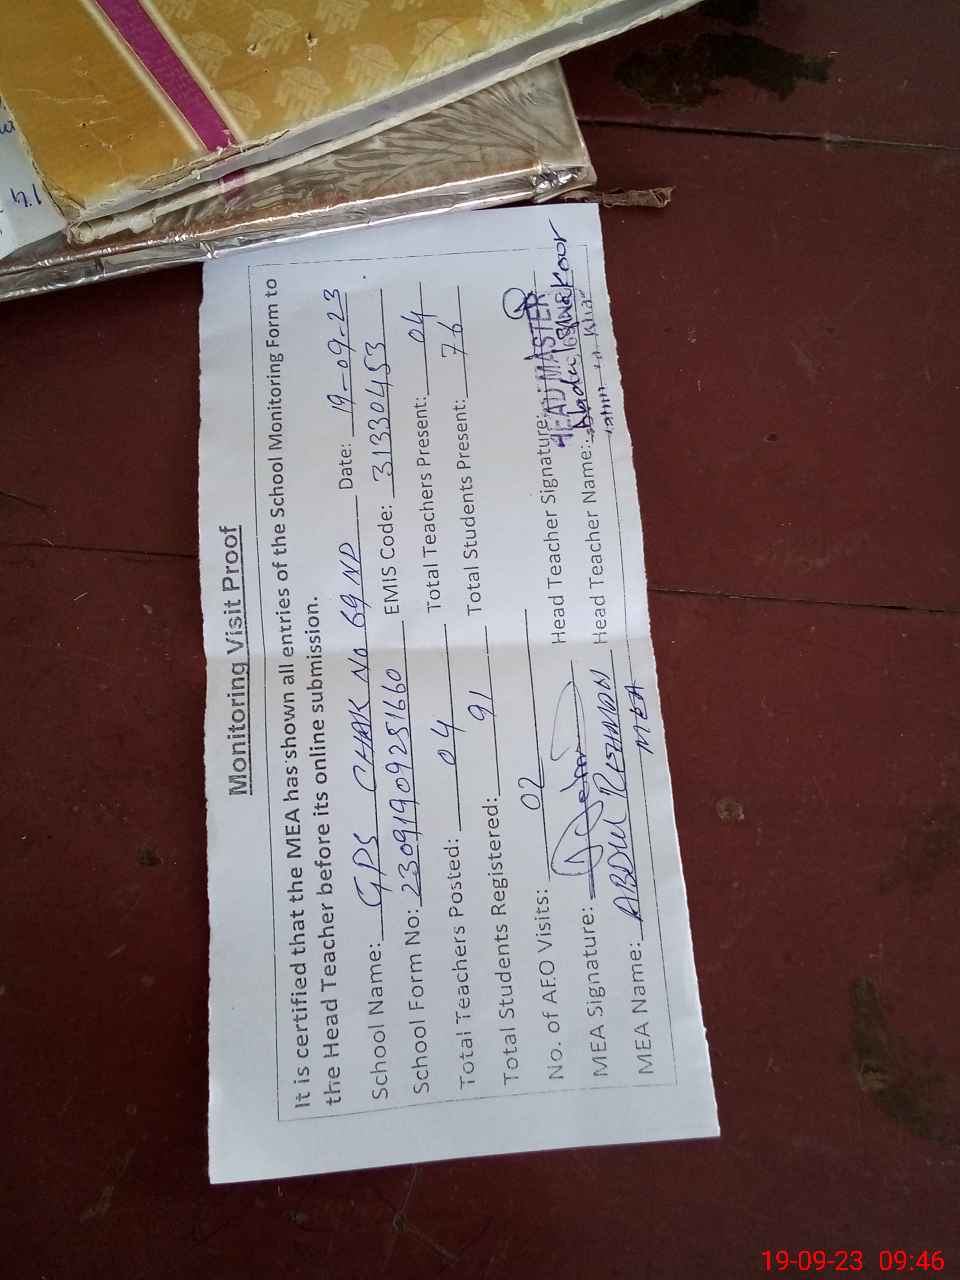 Monitoring Visit Proof
It is certified that the MEA has shown all entries of the School Monitoring Form to
the Head Teacher before its online submission.
School Name: GPS CHAK No 69 NP Date: 19-09-23
School Form No: 23091909251660 EMIS Code: 31330453
Total Teachers Posted: 04 Total Teachers Present: 04
Total Students Registered: 91 Total Students Present: 76
No. of AEO Visits: 02
MEA Signature: Head Teacher Signature: HEAD MASTER
MEA Name: ABDUL REHMAN Head Teacher Name: Abdul Shakoor
MEA
19-09-23 09:46